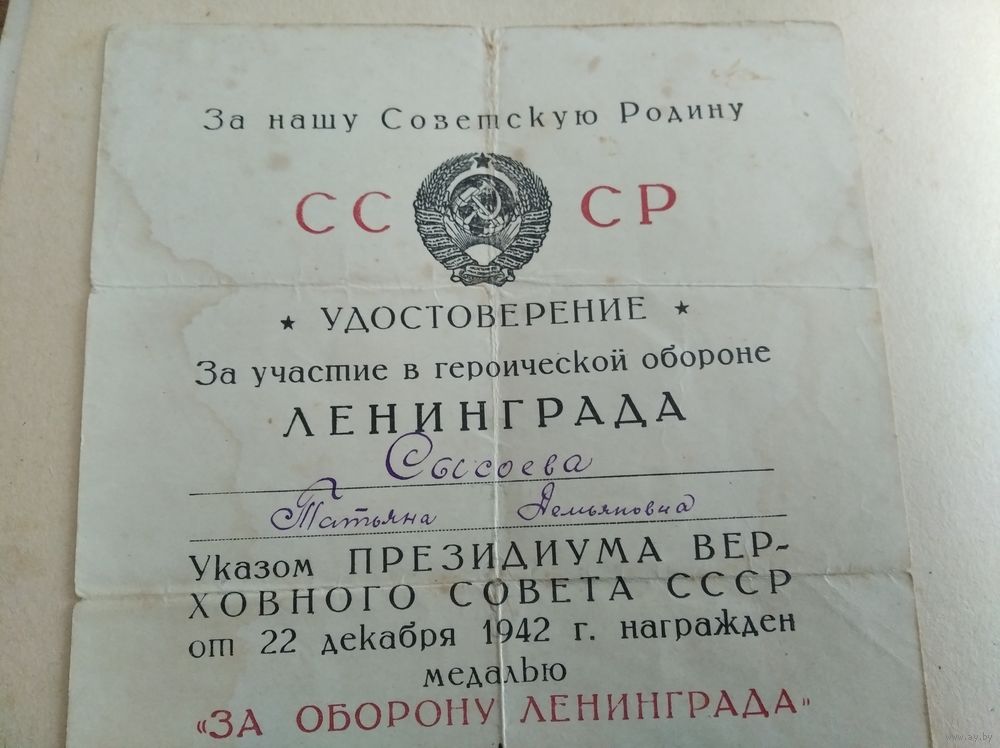 За нашу Советскую Родину
СС СР
★ УДОСТОВЕРЕНИЕ ★
За участие в героической обороне
ЛЕНИНГРАДА
Сысоева
Татьяна Демьяновна
Указом ПРЕЗИДИУМА ВЕР-
ХОВНОГО СОВЕТА СССР
от 22 декабря 1942 г. награжден
медалью
«ЗА ОБОРОНУ ЛЕНИНГРАДА»
www.ay.by